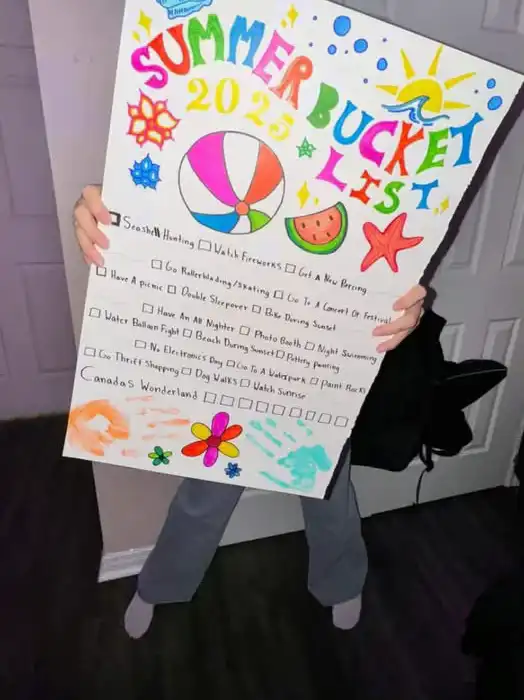 SUMMER
2025 BUCKET
LIST
Seashell Hunting Watch Fireworks Get A New Piercing
Go Rollerblading/skating Go To A Concert Or Festival
Have A picnic Double Sleepover Bike During Sunset
Have An All Nighter Photo Booth Night Swimming
Water Balloon Fight Beach During Sunset Pottery painting
No Electronics Day Go To A Waterpark Paint Rocks
Go Thrift Shopping Dog Walks Watch Sunrise
Canadas Wonderland